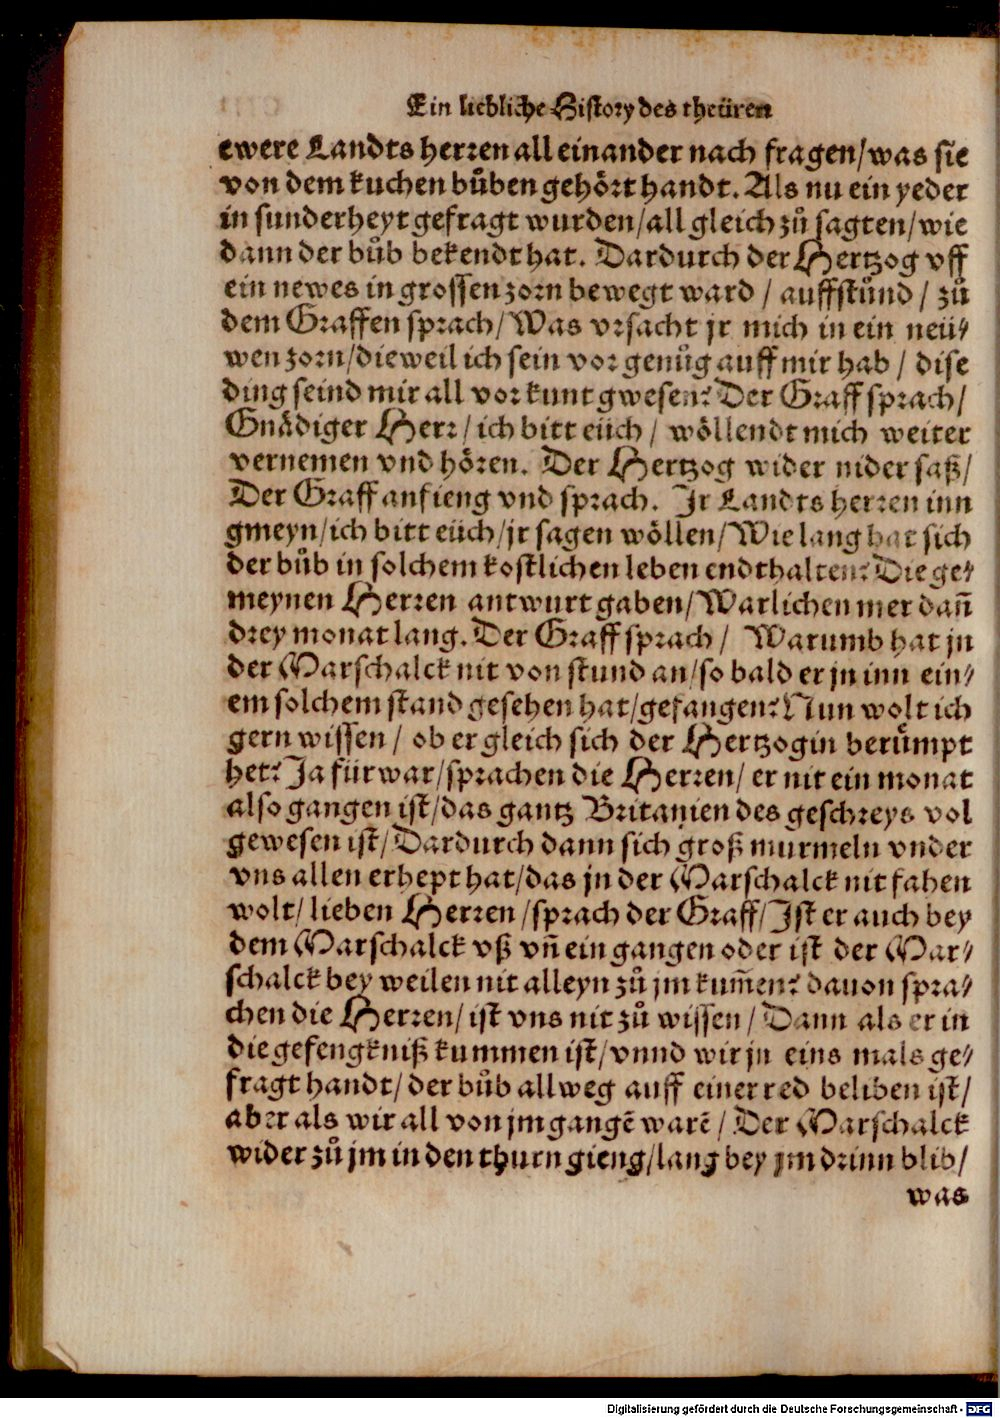 Ein liebliche History des theüren
ewere Landts herren all einander nach fragen/was sie
von dem kuchen bůben gehört handt. Als nu ein yeder
in sunderheyt gefragt wurden/all gleich zů sagten/wie
dann der bůb bekendt hat. Dardurch der Hertzog vff
ein newes in grossen zorn bewegt ward / auffstůnd / zů
dem Graffen sprach/Was vrsacht jr mich in ein neü-
wen zorn/dieweil ich sein vor genůg auff mir hab / dise
ding seind mir all vor kunt gwesen? Der Graff sprach/
Gnädiger Herr/ich bitt eüch / wöllendt mich weiter
vernemen vnd hören. Der Hertzog wider nider saß/
Der Graff anfieng vnd sprach. Ir Landts herren inn
gmeyn/ich bitt eüch/jr sagen wöllen/Wie lang hat sich
der bůb in solchem kostlichen leben endthalten? Die ge-
meynen Herren antwurt gaben/Warlichen mer dañ
drey monat lang. Der Graff sprach / Warumb hat jn
der Marschalck nit von stund an/so bald er jn inn ein-
em solchem stand gesehen hat/gefangen? Nun wolt ich
gern wissen / ob er gleich sich der Hertzogin berůmpt
het? Ja fürwar/sprachen die Herren/er nit ein monat
also gangen ist/das gantz Britanien des geschreys vol
gewesen ist/Dardurch dann sich groß murmeln vnder
vns allen erhept hat/das jn der Marschalck nit fahen
wolt/lieben Herren/sprach der Graff/Ist er auch bey
dem Marschalck vß vñ ein gangen oder ist der Mar-
schalck bey weilen nit alleyn zů jm kum̃en? dauon spra-
chen die Herren/ist vns nit zů wissen/Dann als er in
die gefengkniß kummen ist/vnnd wir jn eins mals ge-
fragt handt/der bůb allweg auff einer red beliben ist/
aber als wir all von jm gangē warē / Der Marschalck
wider zů jm in den thurn gieng/lang bey jm drinn blib/
was
Digitalisierung gefördert durch die Deutsche Forschungsgemeinschaft - DFG